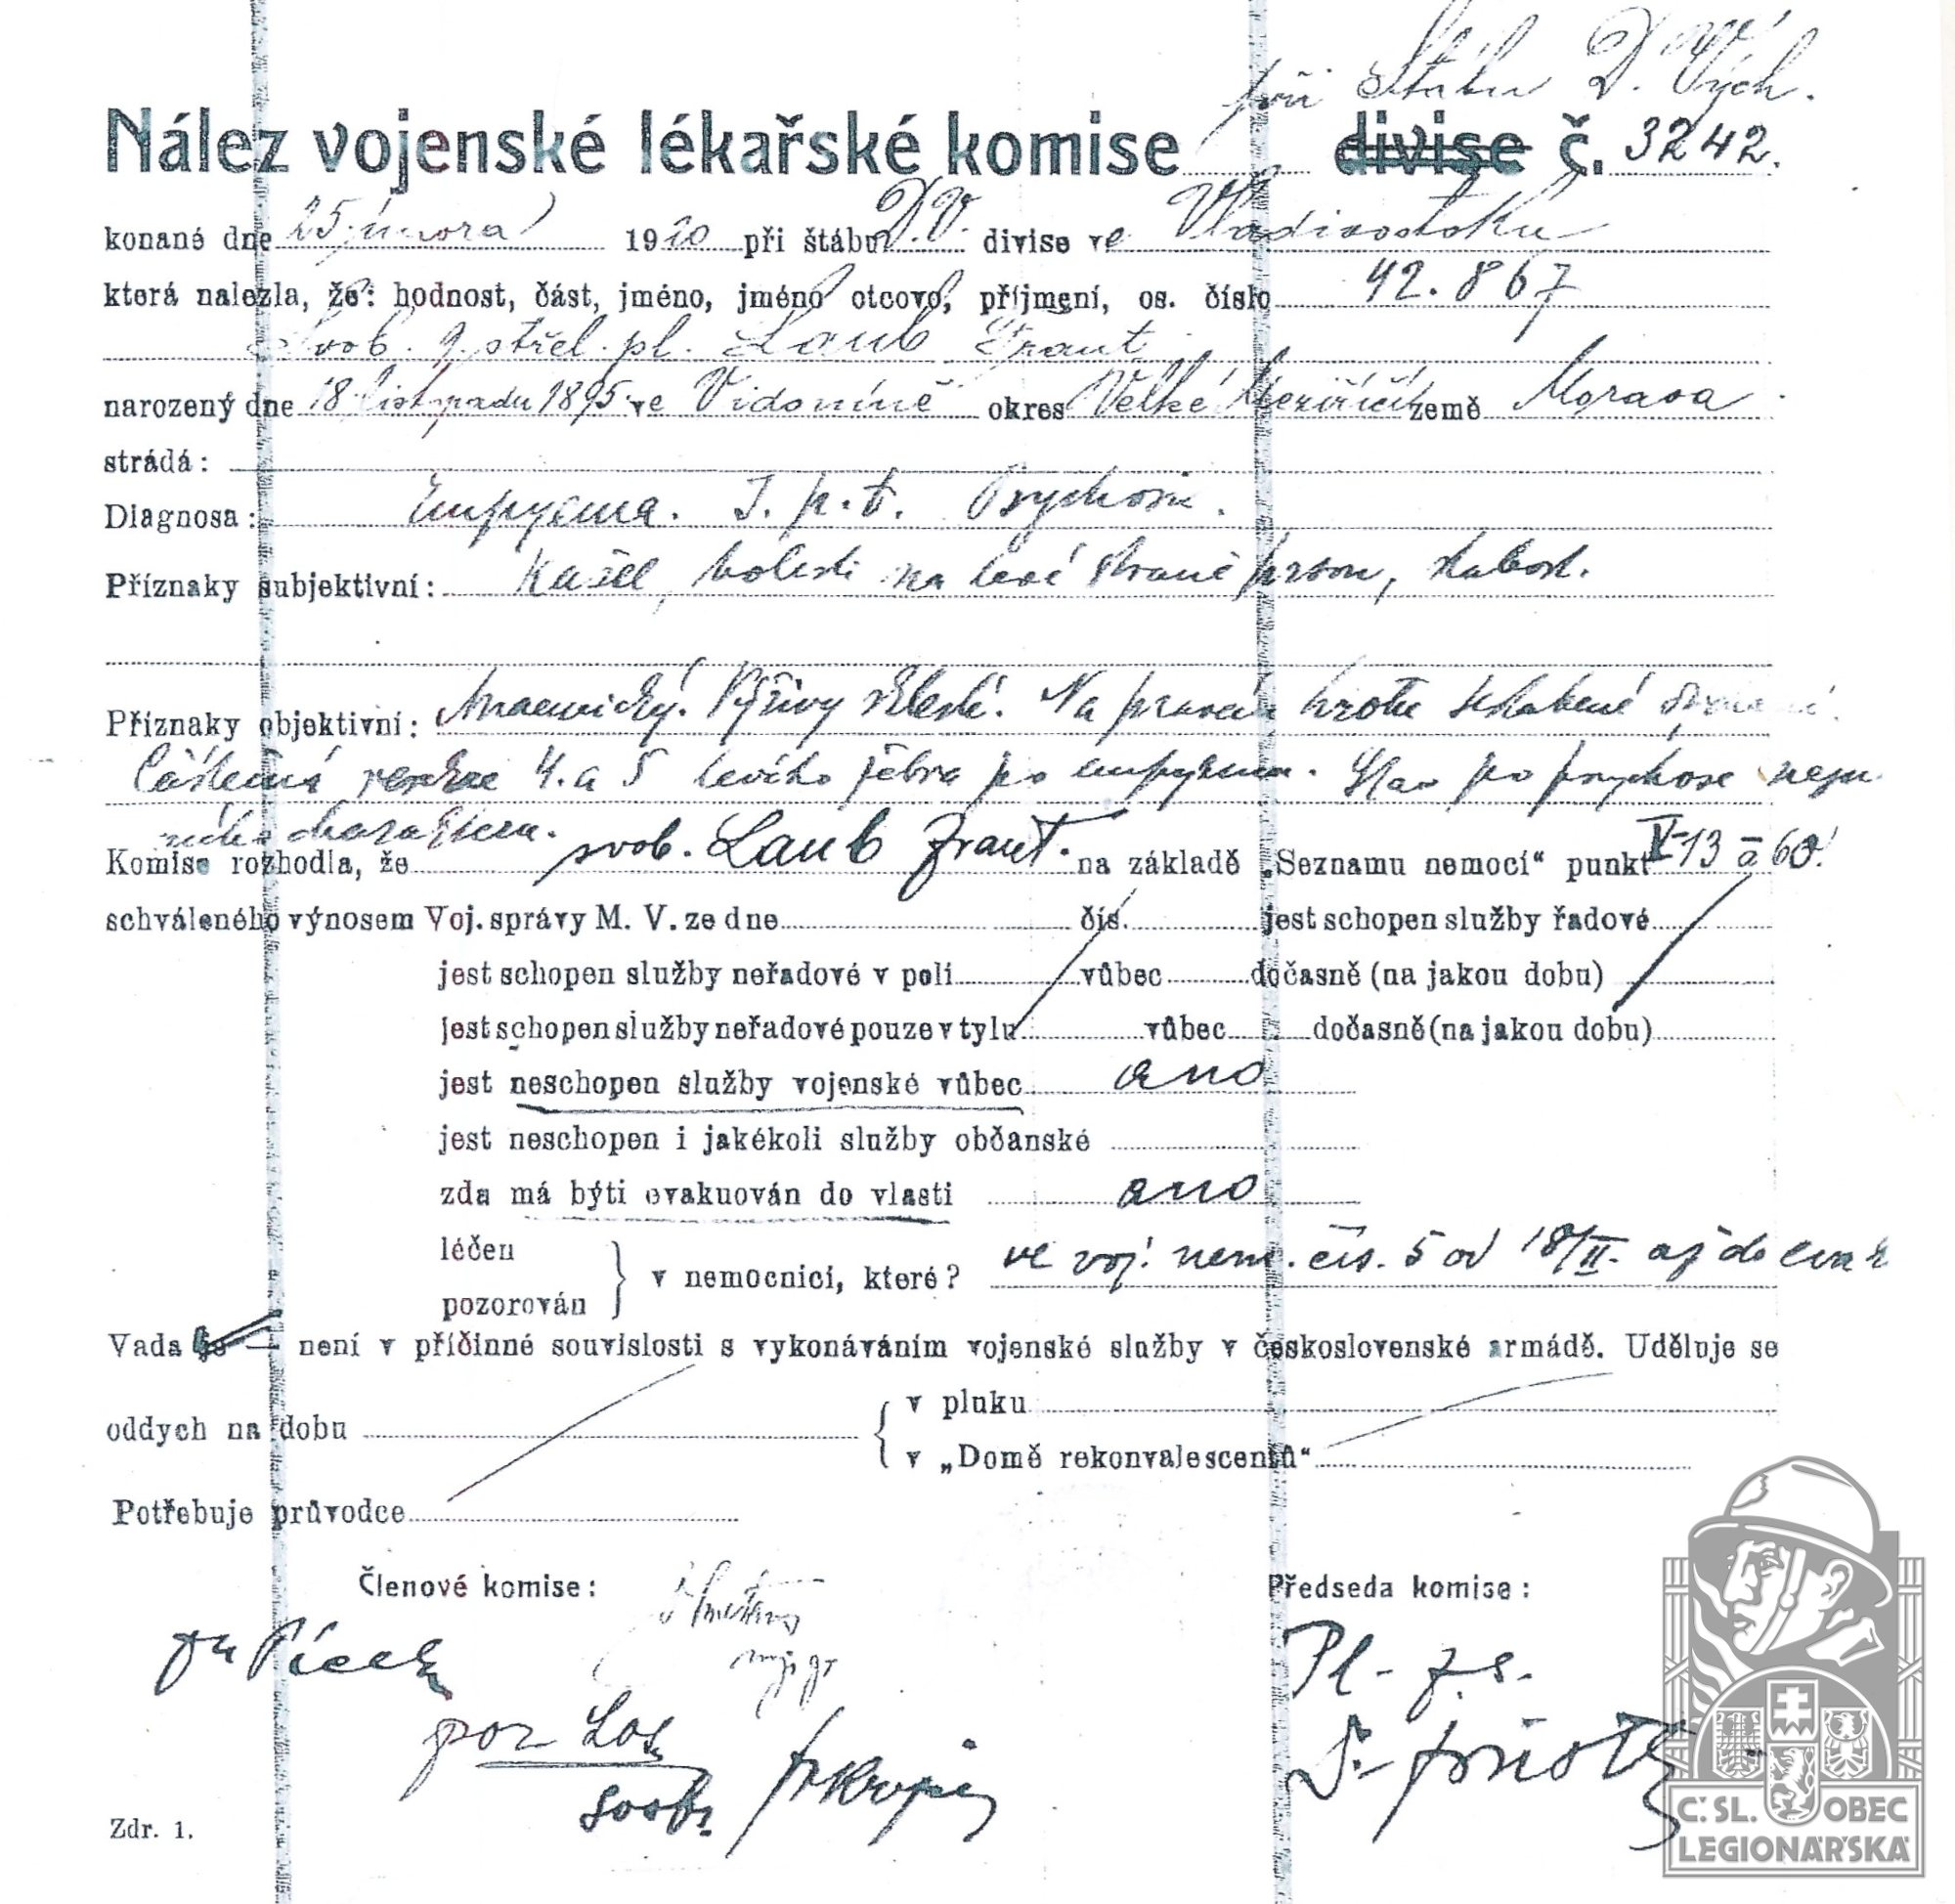 při štábu D. Vých.
Nález vojenské lékařské komise divise č. 3242.
konané dne 25. února 1920 při štábu D.V. divise ve Vladivostoku
která nalezla, že: hodnost, část, jméno, jméno otcovo, příjmení, os. číslo 42.867
svob. 9. střel. pl. Laub Frant.
narozený dne 18. listopadu 1895 ve Vidoníně okres Velké Meziříčí země Morava
strádá:
Diagnosa: Empyema. T. p. t. Psychosis.
Příznaky subjektivní: Kašel, bolesti na levé straně prsou, slabost.
Příznaky objektivní: Anaemický. Výživy slabé. Na pravém hrotu
Částečná 4. a 5 levého žebra po empyemu. Stav po psychose
charakteru.
Komise rozhodla, že svob. Laub Frant. na základě „Seznamu nemocí“ punkt V-13 a 60.
schváleného výnosem Voj. správy M. V. ze dne čís. jest schopen služby řadové
jest schopen služby neřadové v poli vůbec dočasně (na jakou dobu)
jest schopen služby neřadové pouze v tylu vůbec dočasně (na jakou dobu)
jest neschopen služby vojenské vůbec ano
jest neschopen i jakékoli služby občanské
zda má býti evakuován do vlasti ano
léčen
v nemocnici, které? ve voj. nem. čís. 5 od 18/II. až do evak
pozorován
Vada je — není v příčinné souvislosti s vykonáváním vojenské služby v československé armádě. Uděluje se
v pluku
oddych na dobu
v „Domě rekonvalescentů“
Potřebuje průvodce
Členové komise:
Předseda komise:
Pl. zs.
por
Zdr. 1.
Č. SL. OBEC
LEGIONÁŘSKÁ